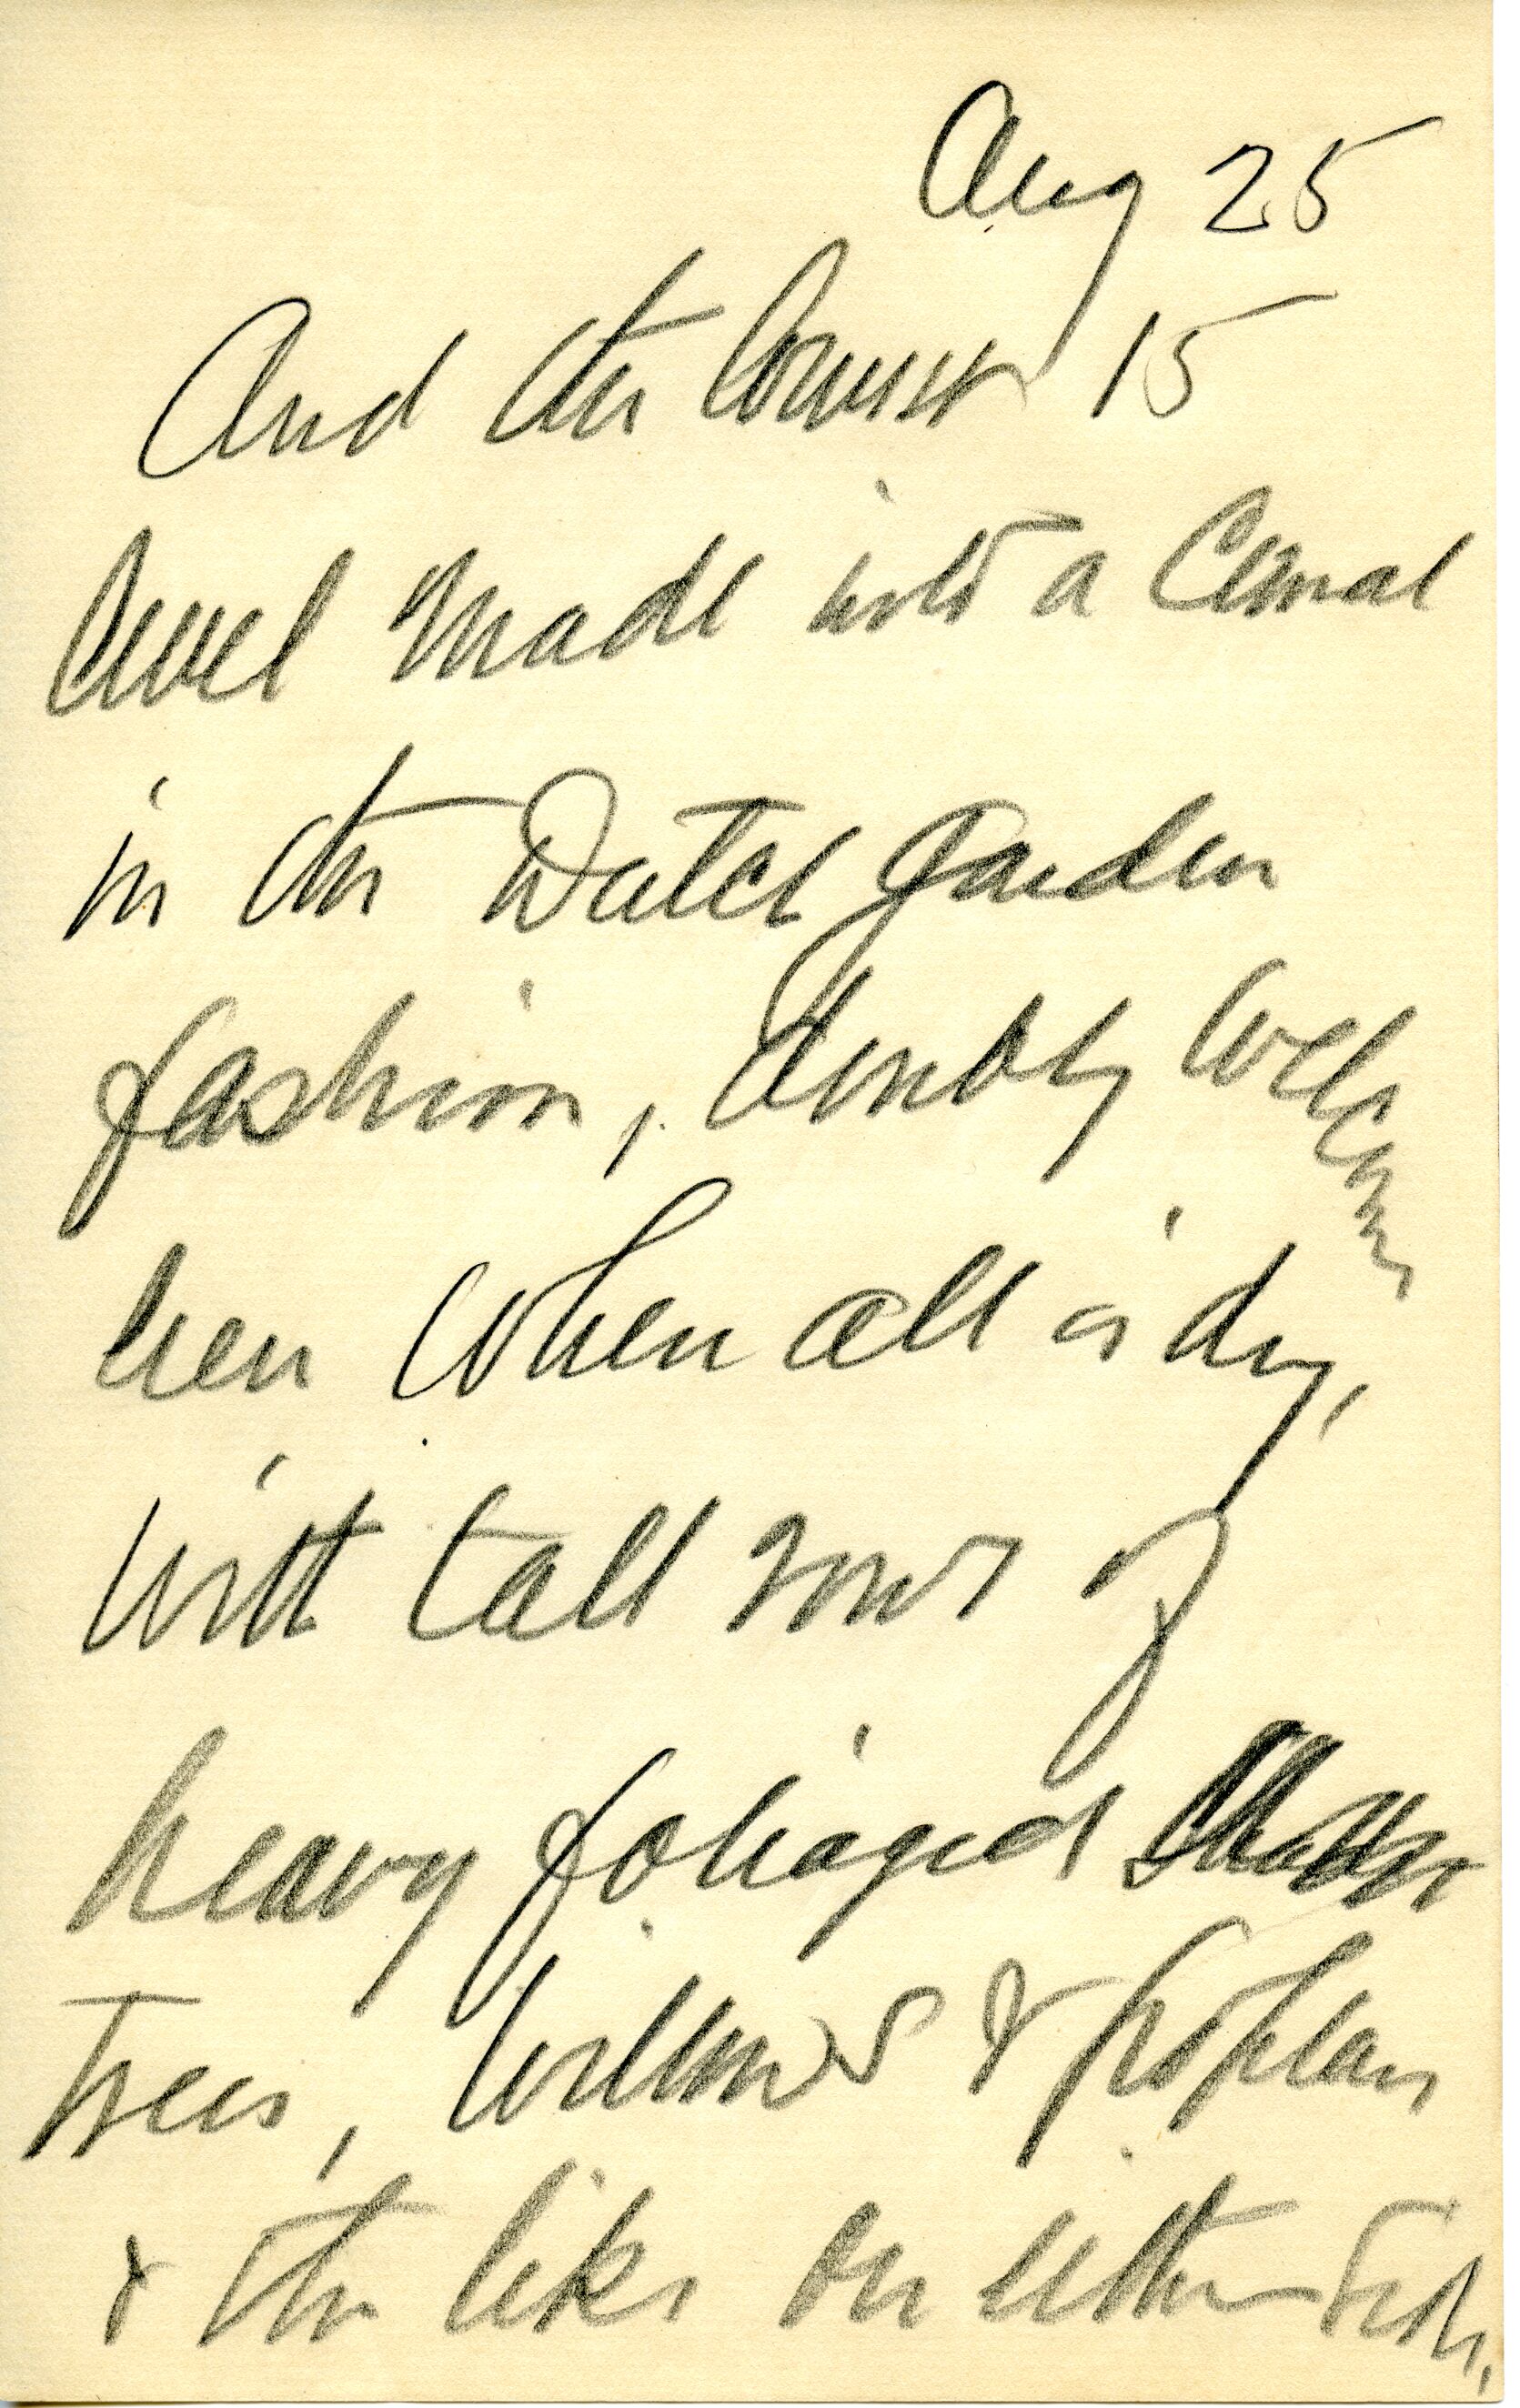 Aug 25
And the lowest 15
level made into a Canal
in the Dutch garden
fashion, doubly welcome
here when all is dry,
with tall rows of
heavy foliaged
trees, willows & poplars
& the like on either side,